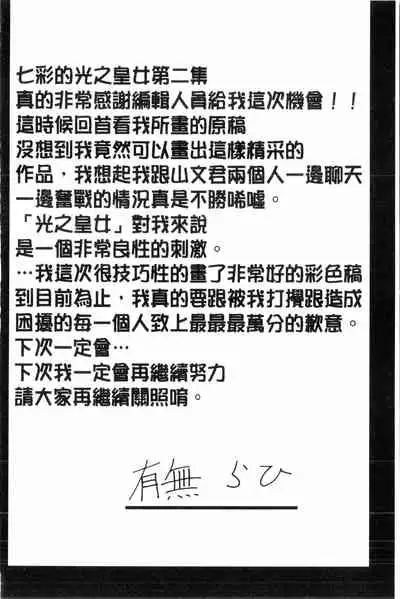 七彩的光之皇女第二集
真的非常感謝編輯人員給我這次機會！！
這時候回首看我所畫的原稿
沒想到我竟然可以畫出這樣精采的
作品，我想起我跟山文君兩個人一邊聊天
一邊奮戰的情況真是不勝唏噓。
「光之皇女」對我來說
是一個非常良性的刺激。
…我這次很技巧性的畫了非常好的彩色稿
到目前為止，我真的要跟被我打攪跟造成
困擾的每一個人致上最最最萬分的歉意。
下次一定會…
下次我一定會再繼續努力
請大家再繼續關照唷。
有無 らひ